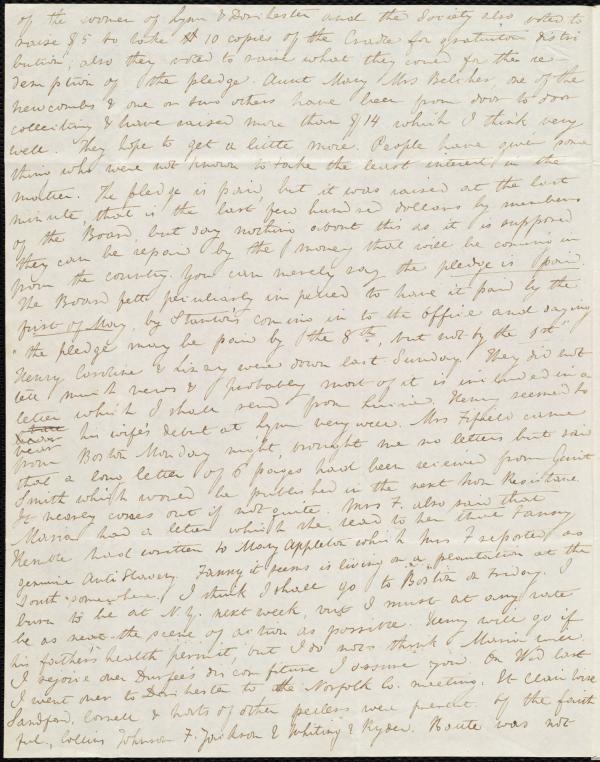 of the women of Lynn & Dorchester and the Society also voted to
raise $5 to take 10 copies of the Cradle for gratuitous distri
bution, also they voted to raise what they could for the re-
demption of the pledge. Aunt Mary Mrs Belcher, one of the
Newcombs & one or two others have been from door to door
collecting & have raised more than $14 which I think very
well. They hope to get a little more. People have given some
thing who were not known to take the least interest in the
matter. The pledge is paid, but it was raised at the last
minute, that is the last few hundred dollars by members
of the Board, but say nothing about this as it is supposed
they can be repaid by the money that will be coming in
from the country. You can merely say the pledge is paid
The Board felt peculiarly impelled to have it paid by the
first of May, by Stanton's coming in to the office and saying
"the pledge may be paid by the 8th, but not by the 1st"
Henry Caroline & Lizzy were down last Sunday. They did not
tell much news & probably most of it is included in a
letter which I shall send from Louisa. Henry seemed to
bear his wife's debut at Lynn very well. Mrs Fifield came
from Boston Monday night, brought me no letters but said
that a long letter of 6 pages had been received from Gerrit
Smith which would be published in the next Non Resistant
It nearly comes out if not quite. Mrs F. also said that
Maria had a letter which she read to her that Fanny
Kemble had written to Mary Appleton which Mrs F reported as
genuine Anti Slavery. Fanny it seems is living on a plantation at the
South somewhere. I think I shall go to Boston on Friday. I
burn to be at N.Y. next week, but I must at any rate
be as near the scene of action as possible. Henry will go if
his father's health permit, but I do not think Maria will.
I rejoice over Durfee's discomfiture I assure you. On Wed last
I went over to Dorchester to the Norfolk Co. meeting. St Clair Wise
Sandford, Cornell & hosts of other peelers were present. Of the faith
ful, Collins Johnson F. Jackson E Whiting & Ryder. Route was not